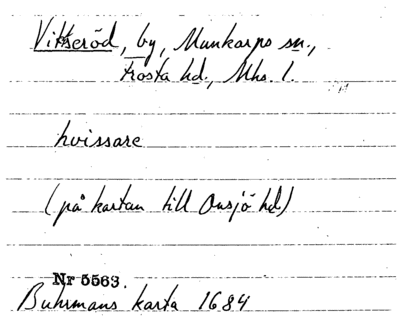 Vittseröd, by, Munkarps sn.,
Frosta hd., Mhs. l.
hvissare
(på kartan till Onsjö hd)
Nr 5563.
Buhrmans karta 1684